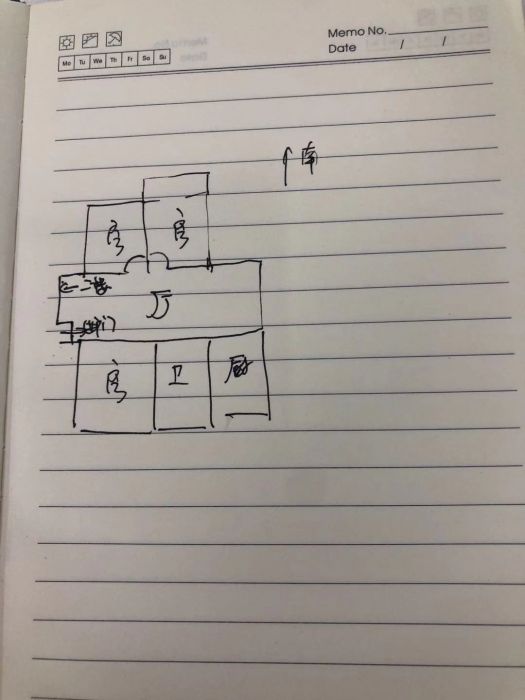 Memo No.
Mo Tu We Th Fr Sa Su
Date / /
↑南
房 房
←二楼
厅
→进门
房 卫 厨